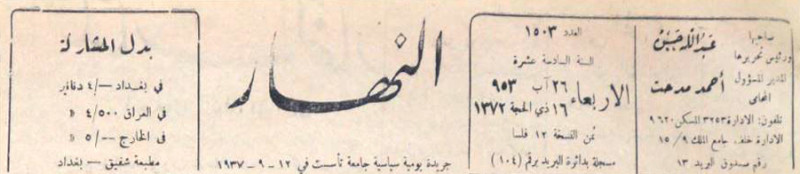 صاحبها
ورئيس تحريرها
عبد الله حسن
المدير المسؤول
المحامي
أحمد مدحت
تلفون: الادارة ٣٢٥٣ المسكن ٩٦٢٠
الادارة خلف جامع الملك ١٥/٩
رقم صندوق البريد ١٣
العدد ١٥٠٣
السنة السادسة عشرة
الاربعاء
٢٦ آب ٩٥٣
١٦ ذي الحجة ١٣٧٢
ثمن النسخة ١٢ فلسا
مسجلة بدائرة البريد برقم (١٠٤)
النهار
جريدة يومية سياسية جامعة تأسست في ١٢-٩-١٩٣٧
بدل المشاركة
في بغداد —/٤ دنانير
في العراق ٤/٥٠٠ »
في الخارج —/٥ »
مطبعة شفيق — بغداد